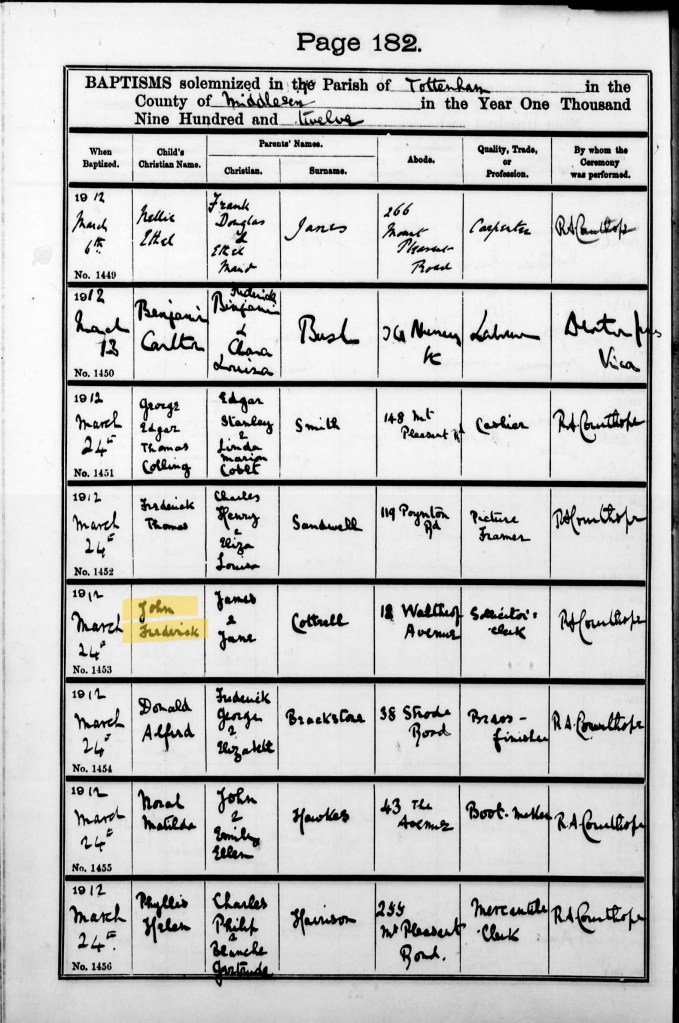 Page 182.
BAPTISMS solemnized in the Parish of Tottenham in the
County of Middlesex in the Year One Thousand
Nine Hundred and twelve
When Baptized.
Child's Christian Name.
Parents' Names.
Christian.
Surname.
Abode.
Quality, Trade, or Profession.
By whom the Ceremony was performed.
1912
March
6th
No. 1449
Nellie
Ethel
Frank
Douglas
&
Ethel
Maud
Janes
266
Mount
Pleasant
Road
Carpenter
R A Courthope
1912
March
13
No. 1450
Benjamin
Carlton
Frederick
Benjamin
&
Clara
Louisa
Bush
Labourer
Vicar
1912
March
24th
No. 1451
George
Edgar
Thomas
Colling
Edgar
Stanley
&
Linda
Marion
Coblt
Smith
148 Mt
Pleasant Rd
Cashier
R.A. Courthope
1912
March
24th
No. 1452
Frederick
Thomas
Charles
Henry
&
Eliza
Louisa
Sandwell
119 Poynton
Rd
Picture
Framer
R A Courthope
1912
March
24th
No. 1453
John
Frederick
James
&
Jane
Cottrell
18 Waltheof
Avenue
Solicitor's
clerk
R A Courthope
1912
March
24th
No. 1454
Donald
Alfred
Frederick
George
&
Elizabeth
Brackstone
38 Strode
Road
Brass-
finisher
R.A. Courthope
1912
March
24th
No. 1455
Norah
Matilda
John
&
Emily
Ellen
Hawkes
43 The
Avenue
Boot-maker
R.A. Courthope
1912
March
24th
No. 1456
Phyllis
Helen
Charles
Philip
&
Blanche
Gertrude
Harrison
255
Mt Pleasant
Road.
Mercantile
Clerk
R.A. Courthope